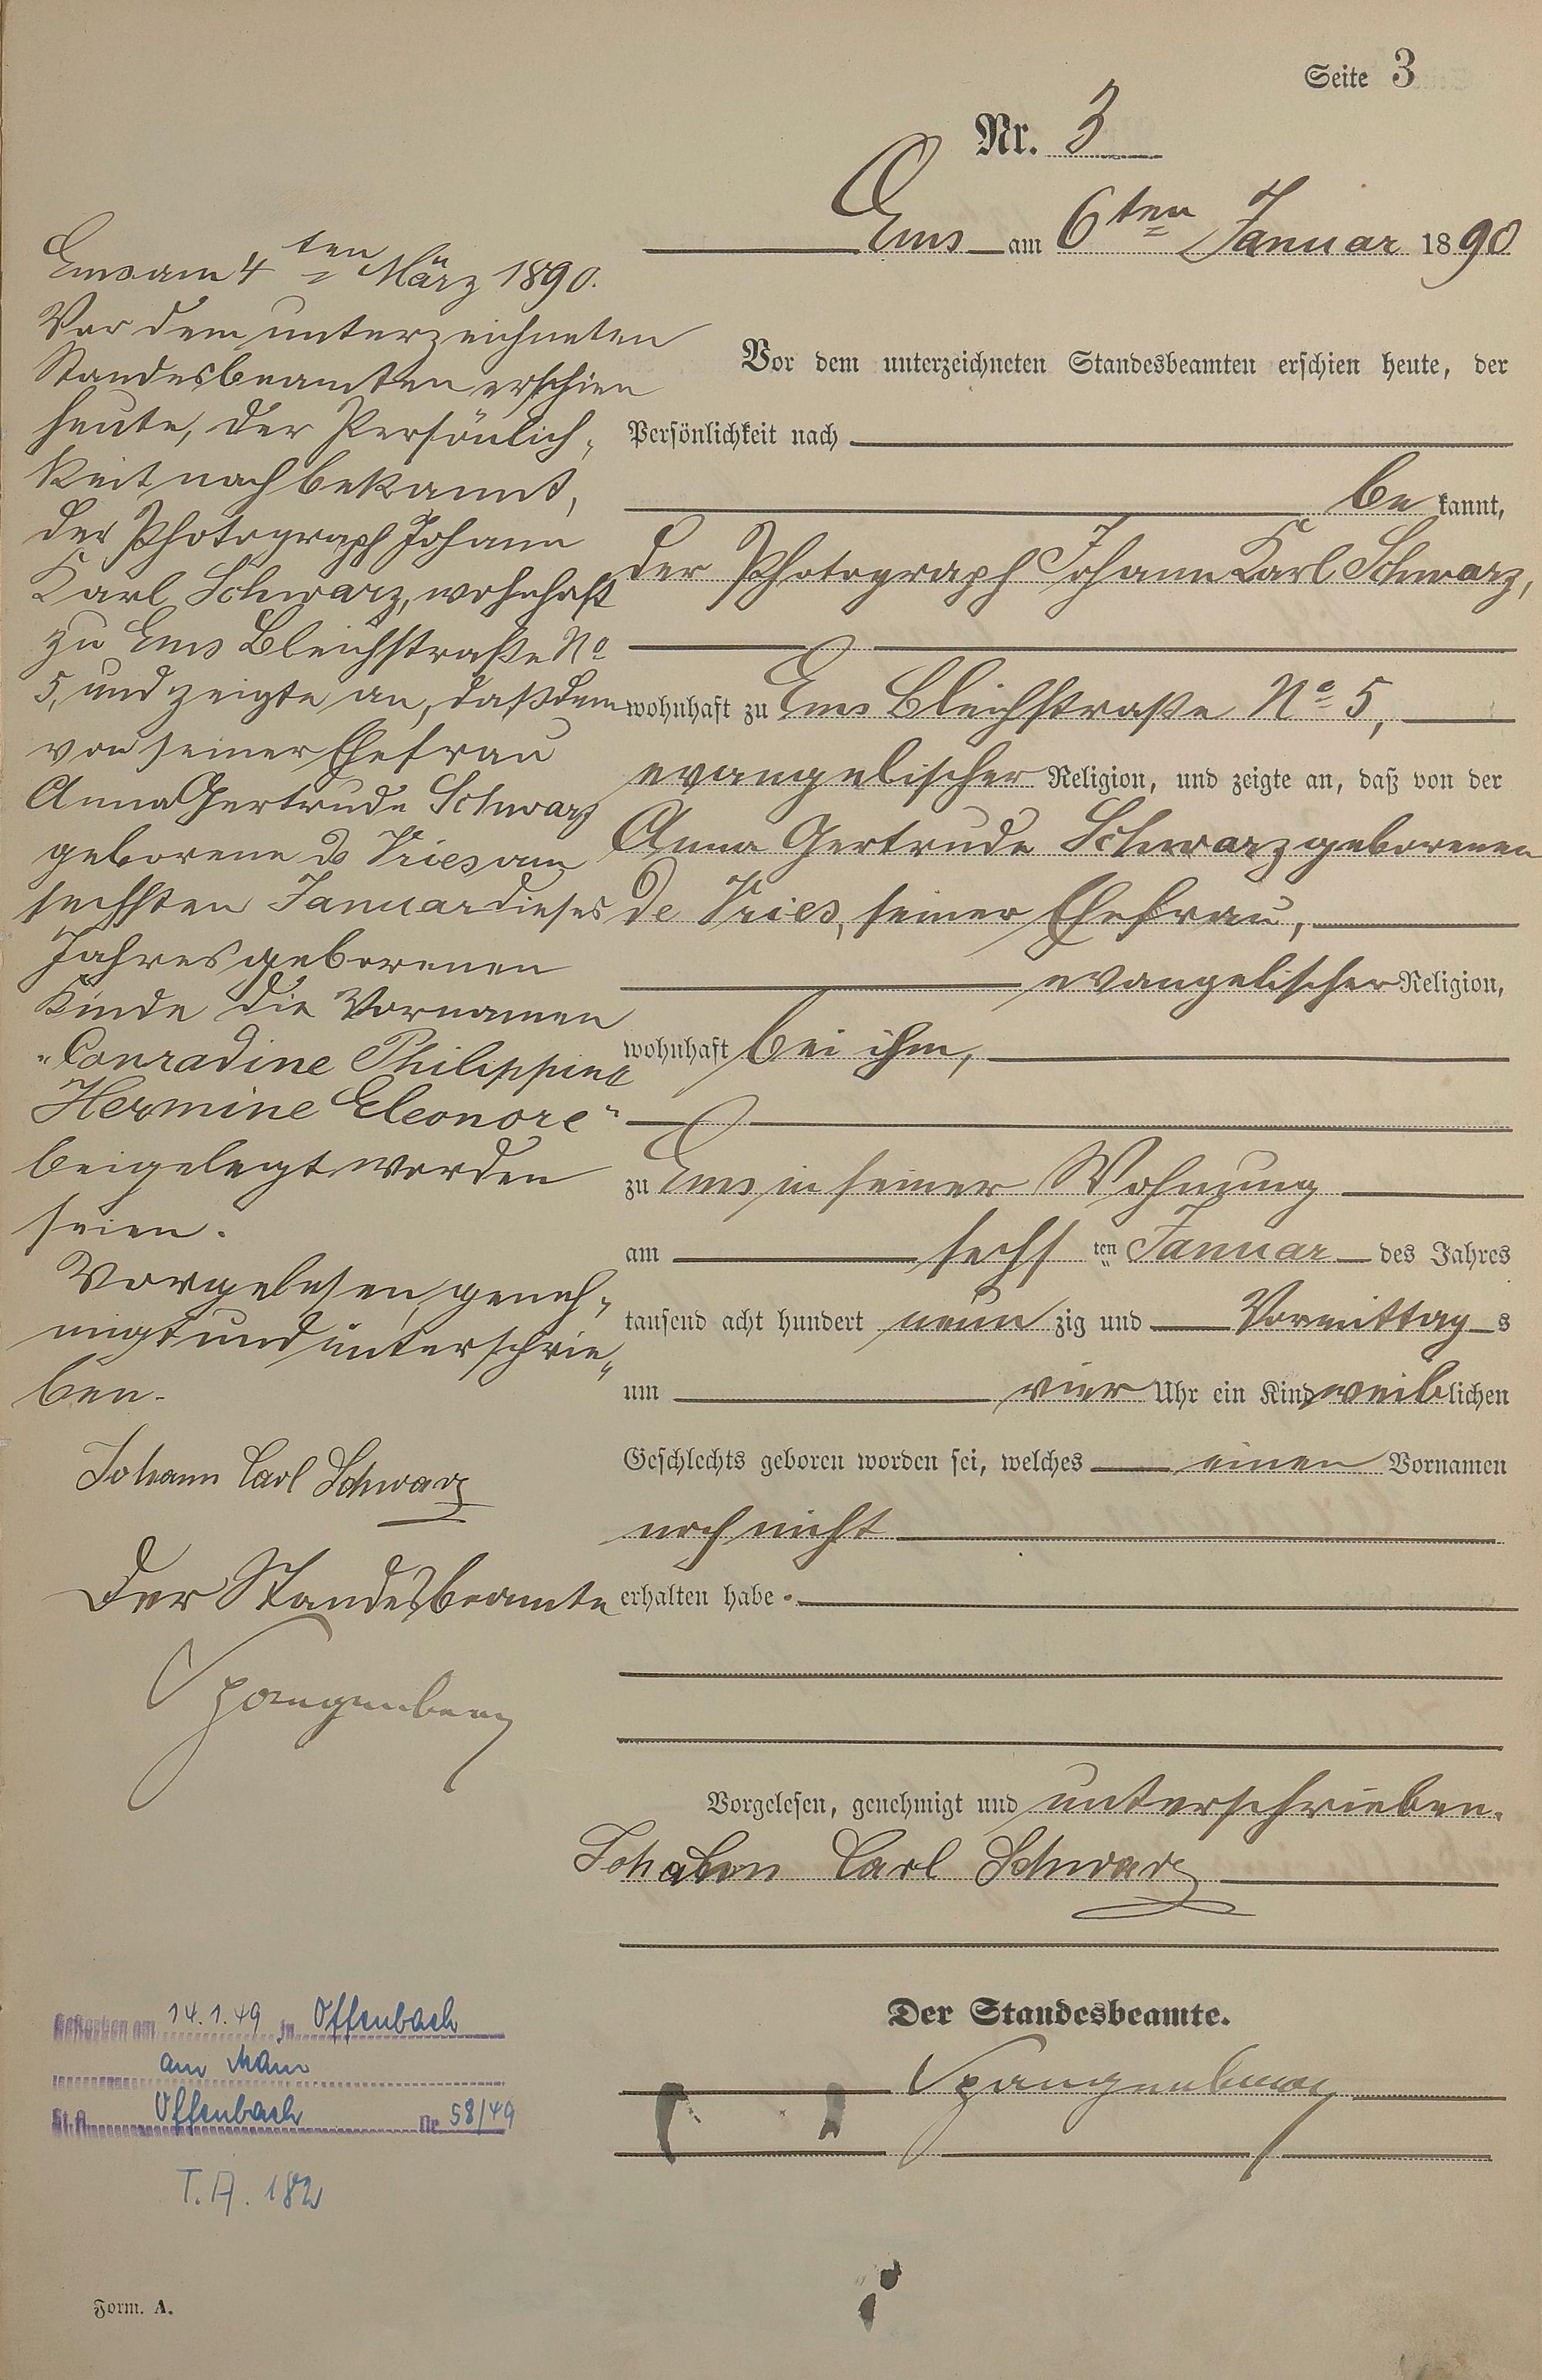 Seite 3
Nr. 3
Ems am 6ten Januar 1890
Vor dem unterzeichneten Standesbeamten erschien heute, der
Persönlichkeit nach
be kannt,
der Photograph Johann Karl Schwarz,
wohnhaft zu Ems Bleichstraße No 5,
evangelischer Religion, und zeigte an, daß von der
Anna Gertrude Schwarz geborenen
de Vries, seiner Ehefrau,
evangelischer Religion,
wohnhaft bei ihm,
zu Ems in seiner Wohnung
am sechs ten Januar des Jahres
tausend acht hundert neun zig und Vormittag s
um vier Uhr ein Kind weiblichen
Geschlechts geboren worden sei, welches einen Vornamen
noch nicht
erhalten habe.
Vorgelesen, genehmigt und unterschrieben.
Johann Carl Schwarz
Der Standesbeamte.
Spangenberg
Ems am 4ten März 1890.
Vor dem unterzeichneten
Standesbeamten erschien
heute, der Persönlich-
keit nach bekannt,
der Photograph Johann
Karl Schwarz, wohnhaft
zu Ems Bleichstraße No
5, und zeigte an, daß dem
von seiner Ehefrau
Anna Gertrude Schwarz
geborene de Vries am
sechsten Januar dieses
Jahres geborenen
Kinde die Vornamen
"Conradine Philippine
Hermine Eleonore"
beigelegt worden
seien.
Vorgelesen, geneh-
migt und unterschrie-
ben.
Johann Carl Schwarz
Der Standesbeamte
Spangenberg
Gestorben am 14.1.49 in Offenbach
am Main
St.A. Offenbach Nr. 58/49
T.A. 182
Form. A.